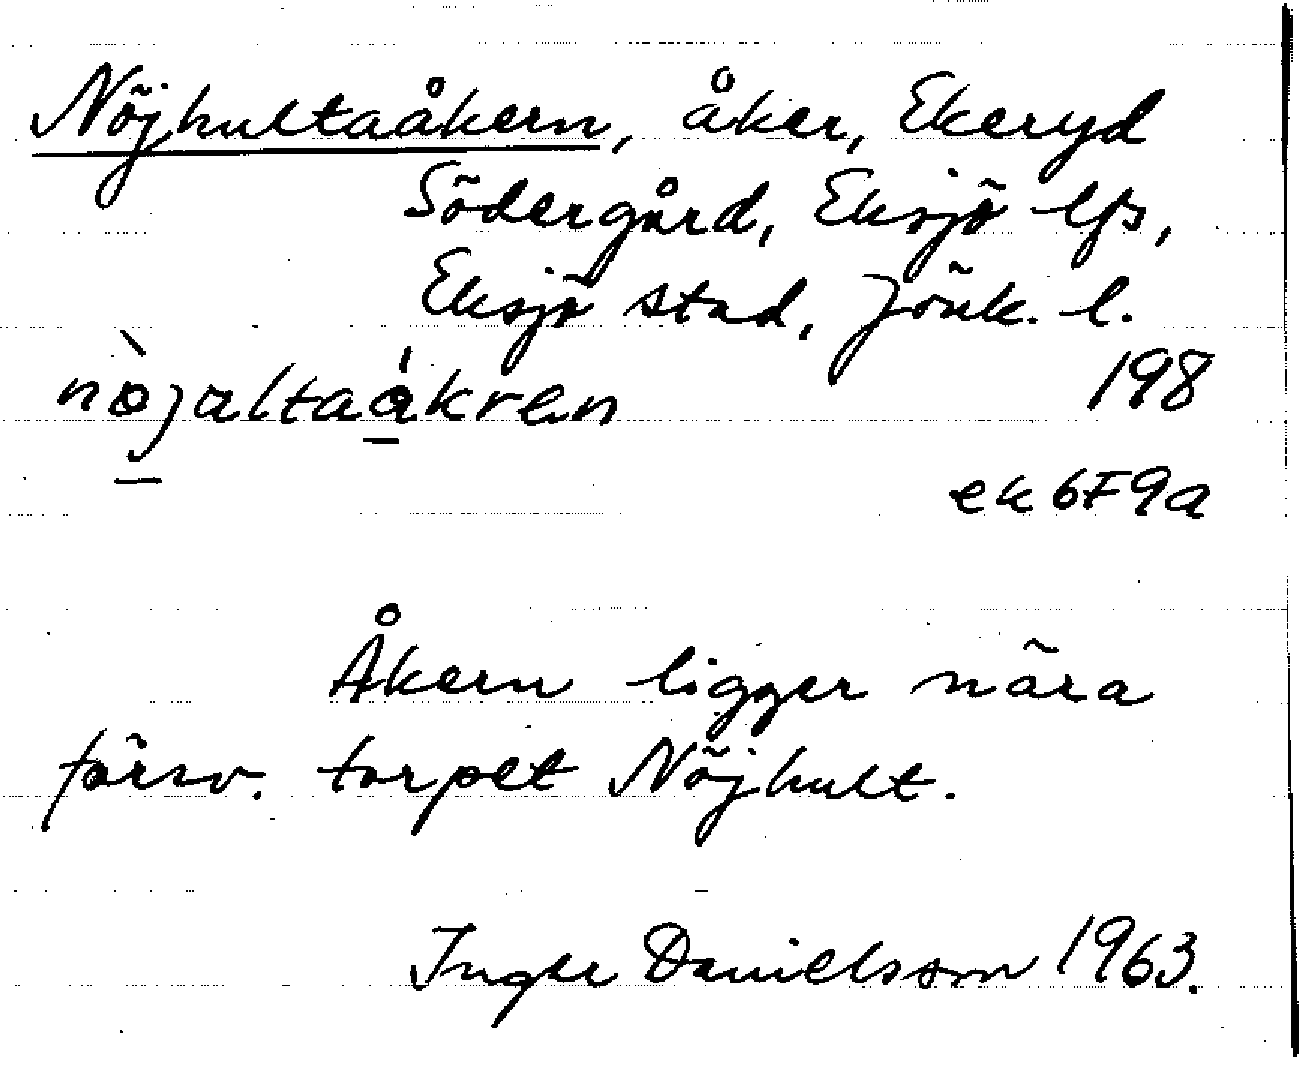 Nöjhultaåkern, åker, Ekeryd
Södergård, Eksjö lfs,
Eksjö stad, Jönk. l.
nöjaltaåkren 198
ek 6F9a
Åkern ligger nära
försv. torpet Nöjhult.
Inger Danielsson 1963.